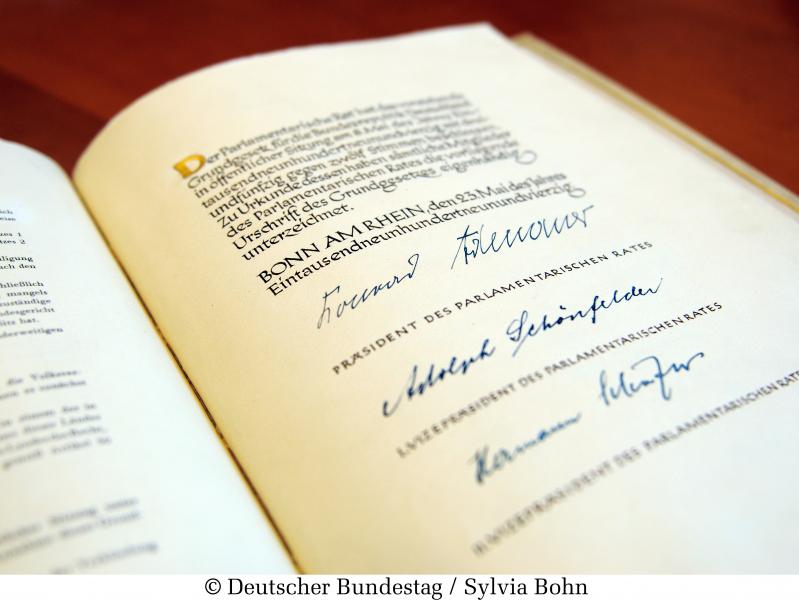 lich
zes 1
tzes 2
ach den
hließlich
mangels
zuständige
ndesgericht
litz hat.
nderweitigen
die Volksver-
in einem der in
Der Parlamentarische Rat hat das vorstehende
Grundgesetz für die Bundesrepublik Deutschland
in öffentlicher Sitzung am 8. Mai des Jahres Ein-
tausendneunhundertneunundvierzig mit drei-
undfünfzig gegen zwölf Stimmen beschlossen.
Zu Urkunde dessen haben sämtliche Mitglieder
des Parlamentarischen Rates die vorliegende
Urschrift des Grundgesetzes eigenhändig
unterzeichnet.
BONN AM RHEIN, den 23. Mai des Jahres
Eintausendneunhundertneunundvierzig
Konrad Adenauer
PRÆSIDENT DES PARLAMENTARISCHEN RATES
Adolph Schönfelder
I. VIZEPRÆSIDENT DES PARLAMENTARISCHEN RATES
Hermann Schäfer
II. VIZEPRÆSIDENT DES PARLAMENTARISCHEN RATES
© Deutscher Bundestag / Sylvia Bohn